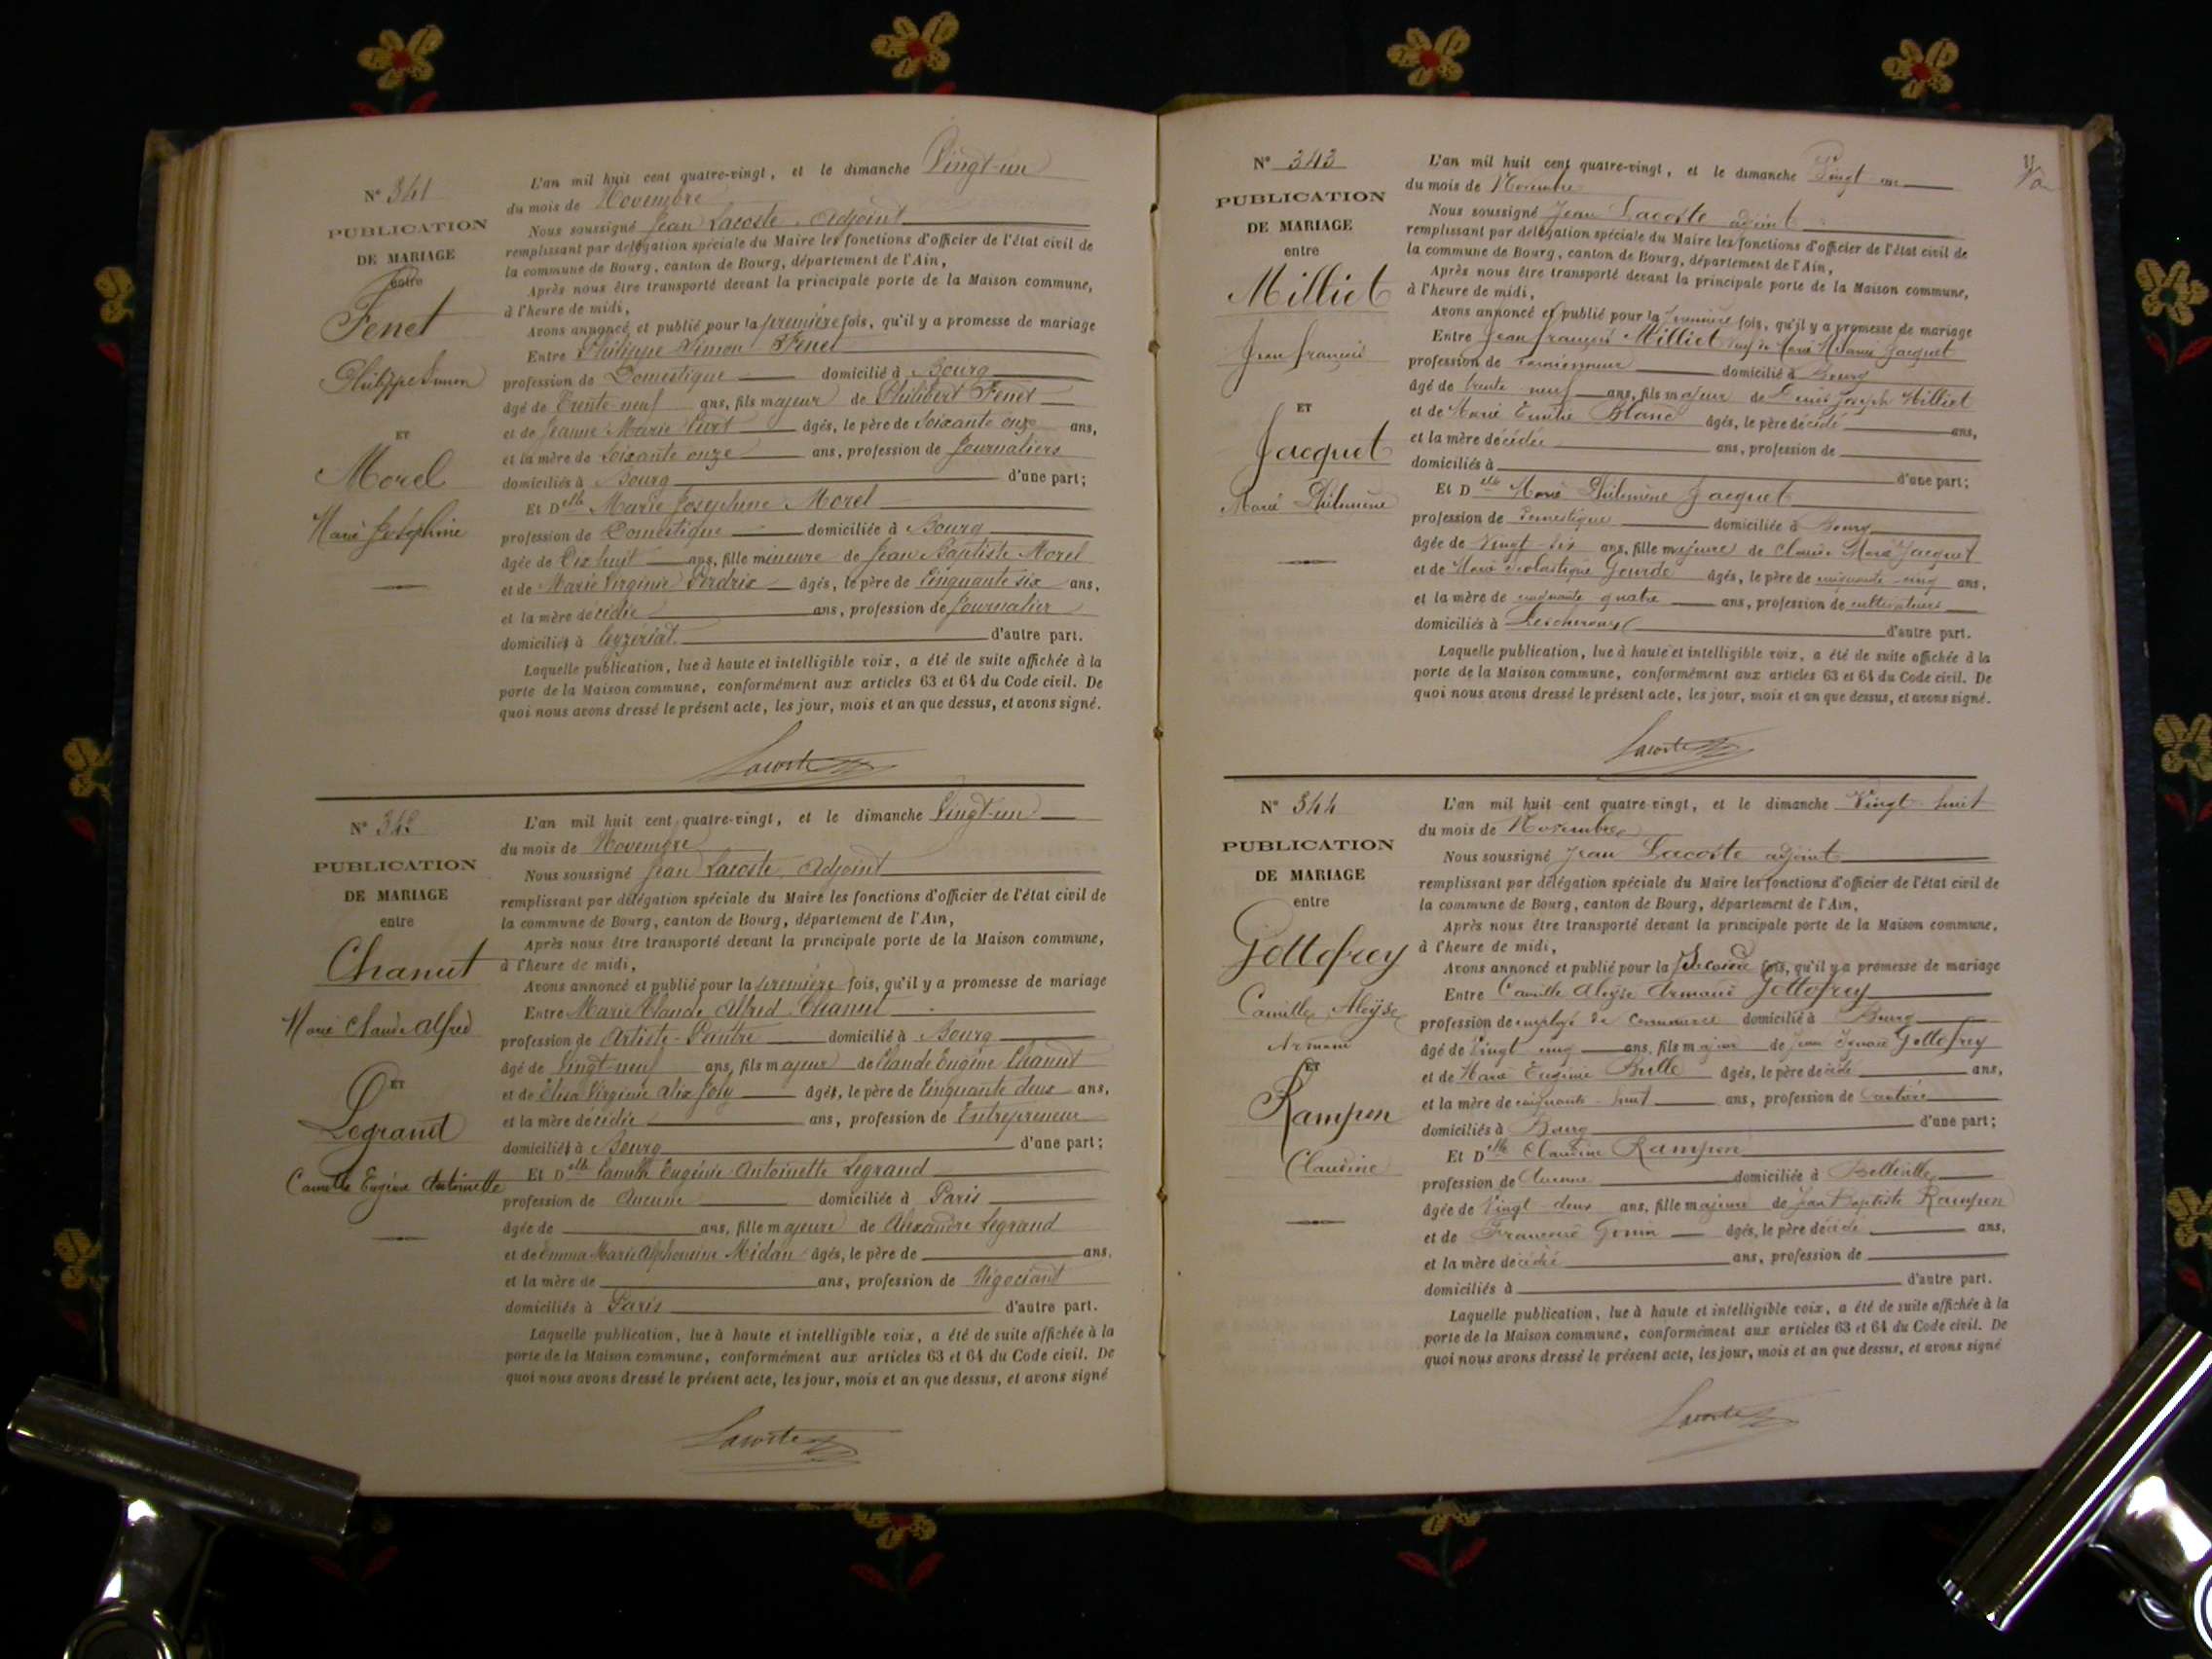 N° 341
PUBLICATION
DE MARIAGE
entre
Fenet
Philippe Simon
ET
Morel
Marie Josephine
L'an mil huit cent quatre-vingt, et le dimanche Vingt-un
du mois de Novembre
Nous soussigné Jean Lacoste, Adjoint
remplissant par délégation spéciale du Maire les fonctions d'officier de l'état civil de
la commune de Bourg, canton de Bourg, département de l'Ain,
Après nous être transporté devant la principale porte de la Maison commune,
à l'heure de midi,
Avons annoncé et publié pour la première fois, qu'il y a promesse de mariage
Entre Philippe Simon Fenet
profession de Domestique domicilié à Bourg
âgé de Trente-neuf ans, fils majeur de Philibert Fenet
et de Jeanne Marie âgés, le père de Soixante onze ans,
et la mère de Soixante onze ans, profession de Journaliers
domiciliés à Bourg d'une part;
Et Delle Marie Josephine Morel
profession de Domestique domiciliée à Bourg
âgée de Dix huit ans, fille mineure de Jean Baptiste Morel
et de Marie Virginie Perdrix âgés, le père de Cinquante six ans,
et la mère décédée ans, profession de Journalier
domiciliés à Ceyzériat d'autre part.
Laquelle publication, lue à haute et intelligible voix, a été de suite affichée à la
porte de la Maison commune, conformément aux articles 63 et 64 du Code civil. De
quoi nous avons dressé le présent acte, les jour, mois et an que dessus, et avons signé.
Lacoste
N° 342
PUBLICATION
DE MARIAGE
entre
Chanut
Marie Claude Alfred
ET
Legrand
Camille Eugénie Antoinette
L'an mil huit cent quatre-vingt, et le dimanche Vingt-un
du mois de Novembre
Nous soussigné Jean Lacoste, Adjoint
remplissant par délégation spéciale du Maire les fonctions d'officier de l'état civil de
la commune de Bourg, canton de Bourg, département de l'Ain,
Après nous être transporté devant la principale porte de la Maison commune,
à l'heure de midi,
Avons annoncé et publié pour la première fois, qu'il y a promesse de mariage
Entre Marie Claude Alfred Chanut
profession de Artiste-Peintre domicilié à Bourg
âgé de Vingt-neuf ans, fils majeur de Claude Eugène Chanut
et de Elisa Virginie Alix Joly âgés, le père de Cinquante deux ans,
et la mère décédée ans, profession de Entrepreneur
domiciliés à Bourg d'une part;
Et Delle Camille Eugénie Antoinette Legrand
profession de Aucune domiciliée à Paris
âgée de ans, fille majeure de Alexandre Legrand
et de Emma Marie Alphonsine Midan âgés, le père de ans,
et la mère de ans, profession de Négociant
domiciliés à Paris d'autre part.
Laquelle publication, lue à haute et intelligible voix, a été de suite affichée à la
porte de la Maison commune, conformément aux articles 63 et 64 du Code civil. De
quoi nous avons dressé le présent acte, les jour, mois et an que dessus, et avons signé
Lacoste
N° 343
PUBLICATION
DE MARIAGE
entre
Milliet
Jean françois
ET
Jacquet
Marie Philomène
L'an mil huit cent quatre-vingt, et le dimanche Vingt un
du mois de Novembre
Nous soussigné Jean Lacoste adjoint
remplissant par délégation spéciale du Maire les fonctions d'officier de l'état civil de
la commune de Bourg, canton de Bourg, département de l'Ain,
Après nous être transporté devant la principale porte de la Maison commune,
à l'heure de midi,
Avons annoncé et publié pour la première fois, qu'il y a promesse de mariage
Entre Jean françois Milliet veuf de Marie Jacquet
profession de domicilié à Bourg
âgé de trente neuf ans, fils majeur de Denis Joseph Milliet
et de Marie Emilie Blanc âgés, le père décédé ans,
et la mère décédée ans, profession de
domiciliés à d'une part;
Et Delle Marie Philomène Jacquet
profession de Domestique domiciliée à Bourg
âgée de Vingt six ans, fille majeure de Claude Marie Jacquet
et de Marie Scolastique Gourde âgés, le père de cinquante cinq ans,
et la mère de cinquante quatre ans, profession de cultivateurs
domiciliés à Lescheroux d'autre part.
Laquelle publication, lue à haute et intelligible voix, a été de suite affichée à la
porte de la Maison commune, conformément aux articles 63 et 64 du Code civil. De
quoi nous avons dressé le présent acte, les jour, mois et an que dessus, et avons signé.
Lacoste
N° 344
PUBLICATION
DE MARIAGE
entre
Gottofrey
Camille Aloÿse
Armand
ET
Rampon
Claudine
L'an mil huit cent quatre-vingt, et le dimanche Vingt huit
du mois de Novembre
Nous soussigné Jean Lacoste adjoint
remplissant par délégation spéciale du Maire les fonctions d'officier de l'état civil de
la commune de Bourg, canton de Bourg, département de l'Ain,
Après nous être transporté devant la principale porte de la Maison commune,
à l'heure de midi,
Avons annoncé et publié pour la Seconde fois, qu'il y a promesse de mariage
Entre Camille Aloÿse Armand Gottofrey
profession de employé de Commerce domicilié à Bourg
âgé de Vingt cinq ans, fils majeur de Jean Gottofrey
et de Marie Eugénie Bulle âgés, le père décédé ans,
et la mère de cinquante-huit ans, profession de
domiciliés à Bourg d'une part;
Et Delle Claudine Rampon
profession de Aucune domiciliée à Belleville
âgée de Vingt deux ans, fille majeure de Jean Baptiste Rampon
et de Françoise Gonin âgés, le père décédé ans,
et la mère décédée ans, profession de
domiciliés à d'autre part.
Laquelle publication, lue à haute et intelligible voix, a été de suite affichée à la
porte de la Maison commune, conformément aux articles 63 et 64 du Code civil. De
quoi nous avons dressé le présent acte, les jour, mois et an que dessus, et avons signé
Lacoste